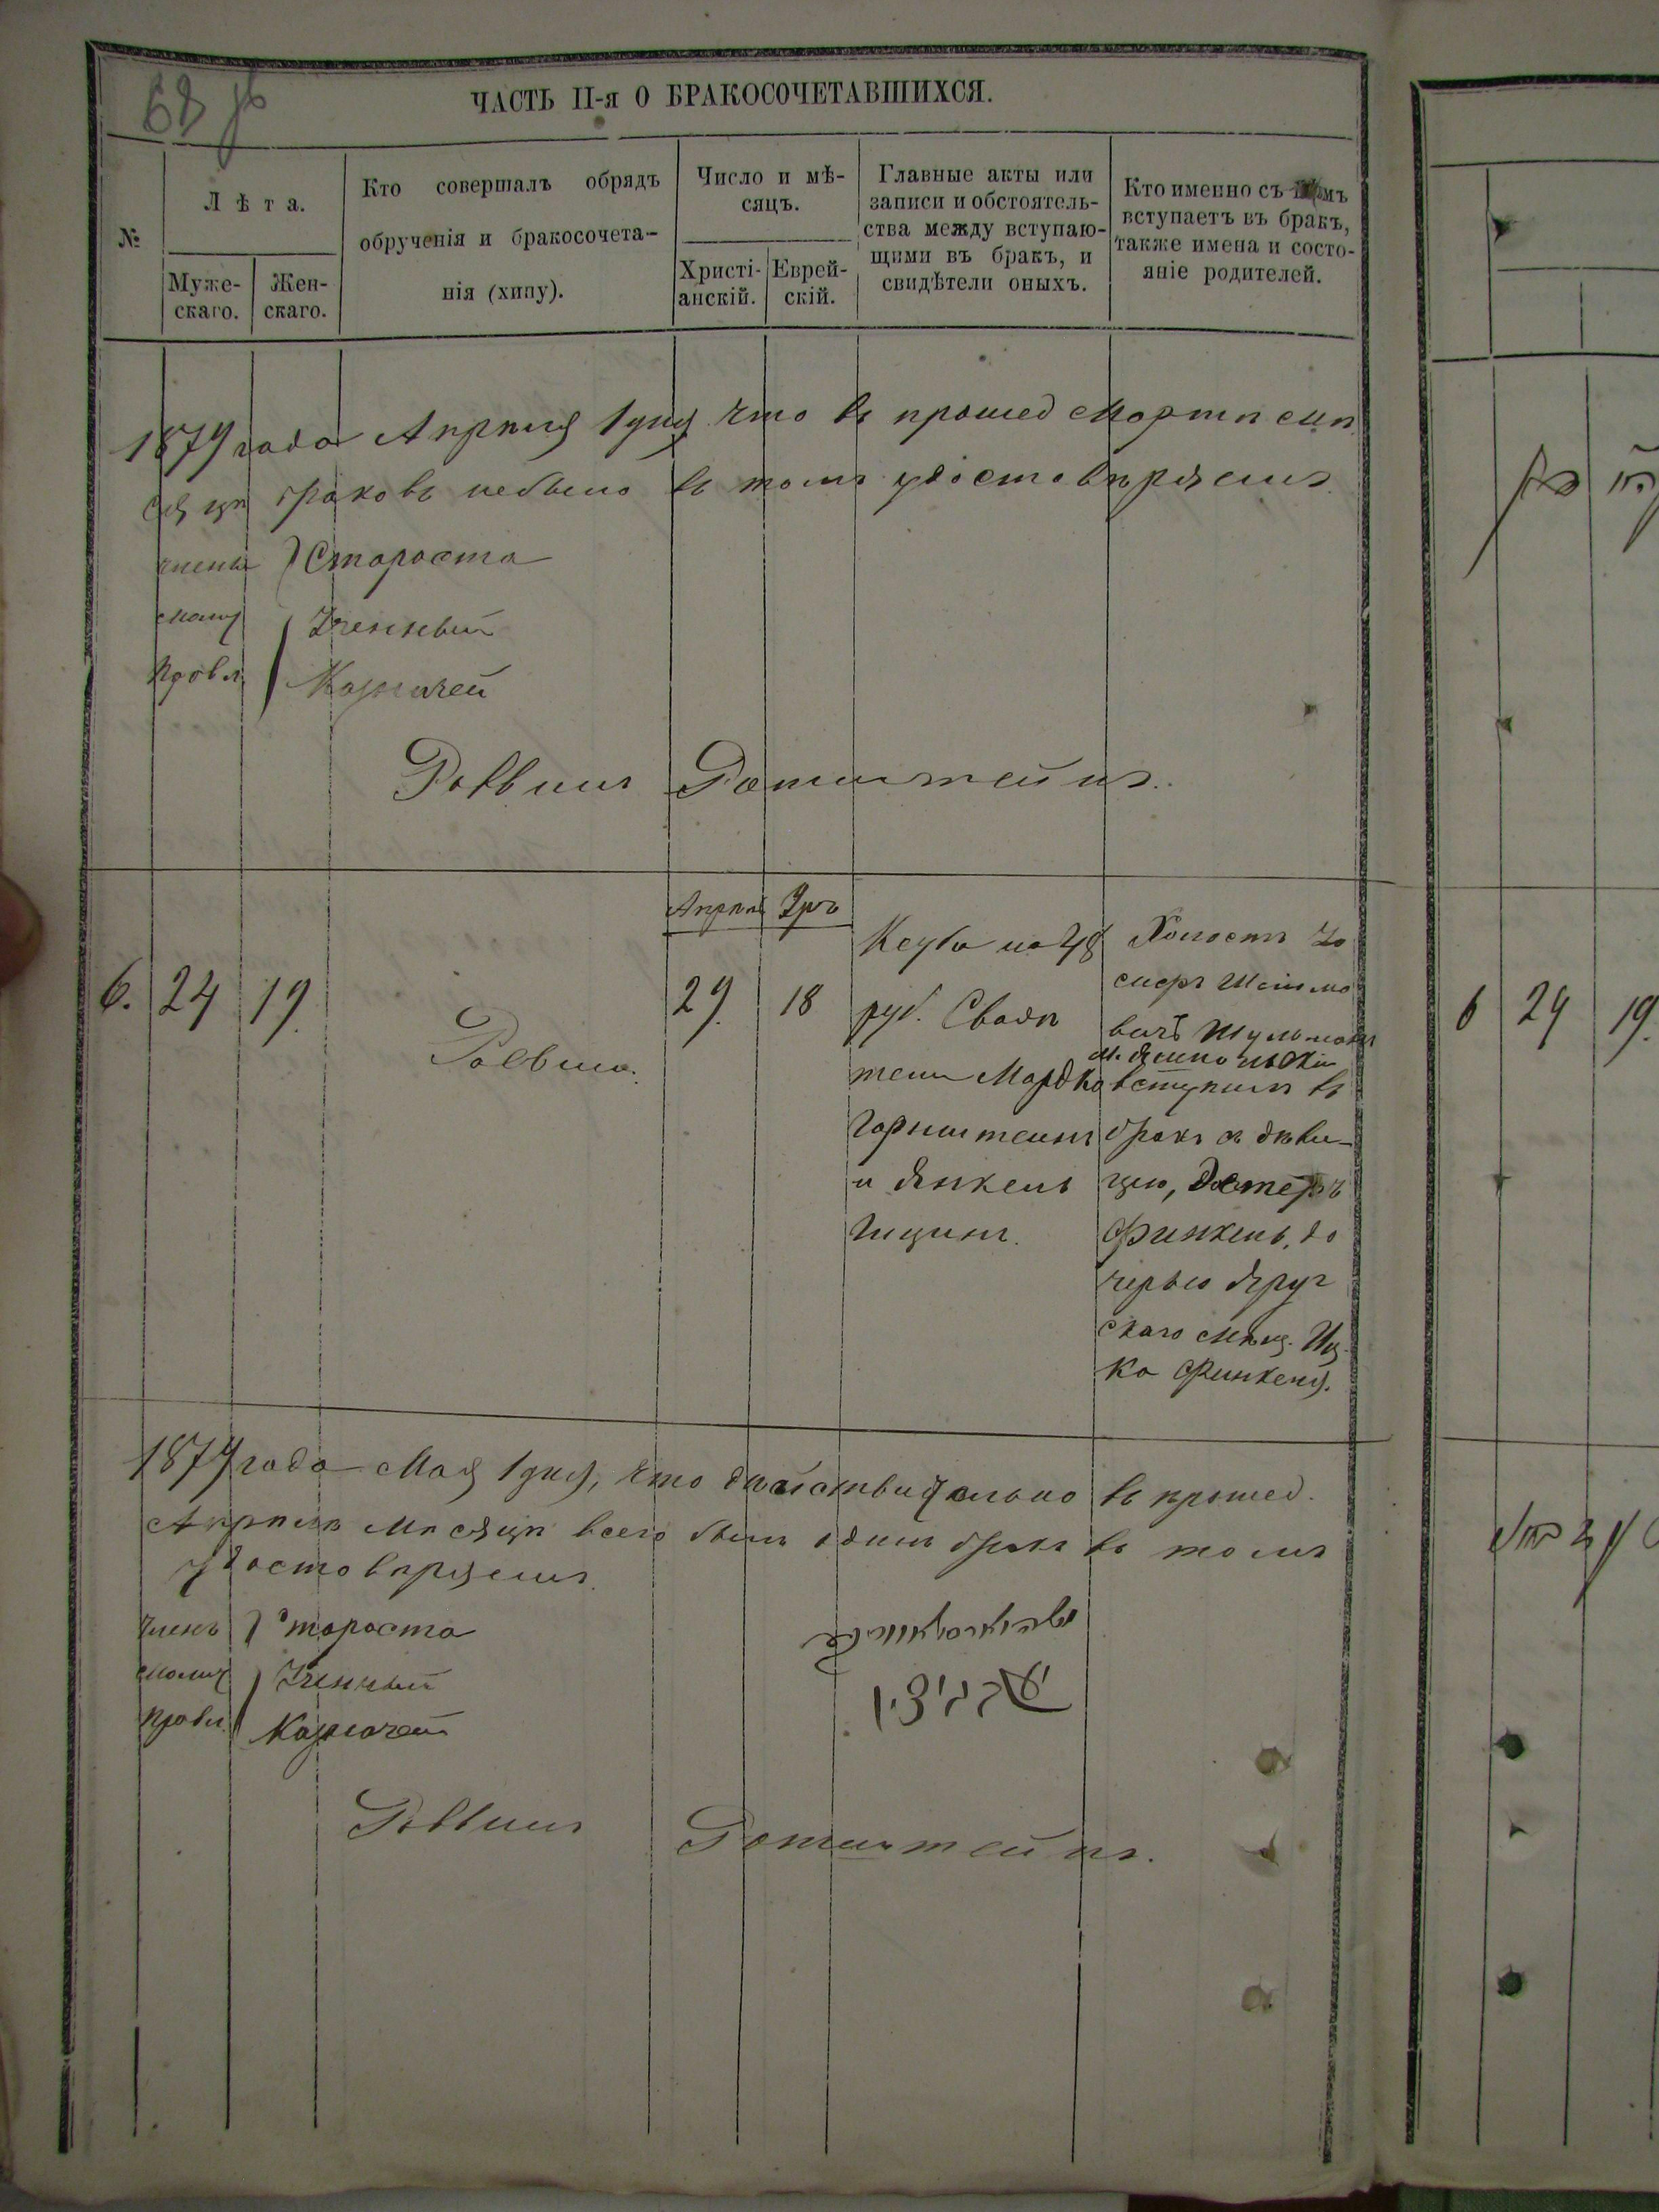 68
ЧАСТЬ II-я О БРАКОСОЧЕТАВШИХСЯ.
№
Лѣта.
Муже-
скаго.
Жен-
скаго.
Кто совершалъ обрядъ
обрученія и бракосочета-
нія (хипу).
Число и мѣ-
сяцъ.
Христі-
анскій.
Еврей-
скій.
Главные акты или
записи и обстоятель-
ства между вступаю-
щими въ бракъ, и
свидѣтели оныхъ.
Кто именно съ кѣмъ
вступаетъ въ бракъ,
также имена и состо-
яніе родителей.
1874 года Апрѣля 1 дня что въ прошед Мартѣ мѣ
сяцѣ браковъ небыло въ томъ удостовѣряемъ
члены Староста
Ученный
Казначей
Раввинъ Ротштейнъ.
Апрѣль Іръ
6. 24 19. Раввинъ. 29. 18
Ксуба на 48
руб. Свадѣ
тели Мордко
Горнштейнъ
и Янкель
Холостъ Іо
сифъ
вичъ Шульманъ
вступилъ въ
бракъ съ дѣви-
цею, Эстеръ
Финкель, до
черью Яруг
скаго мѣщ. Иц
ка Финкеля.
1874 года Мая 1 дня, что дѣйствительно въ прошед.
Апрѣлѣ мѣсяцѣ всего былъ одинъ бракъ въ томъ
удостовѣряемъ
членъ Староста
Ученный
Казначей
Раввинъ Ротштейнъ.
6 24 19.